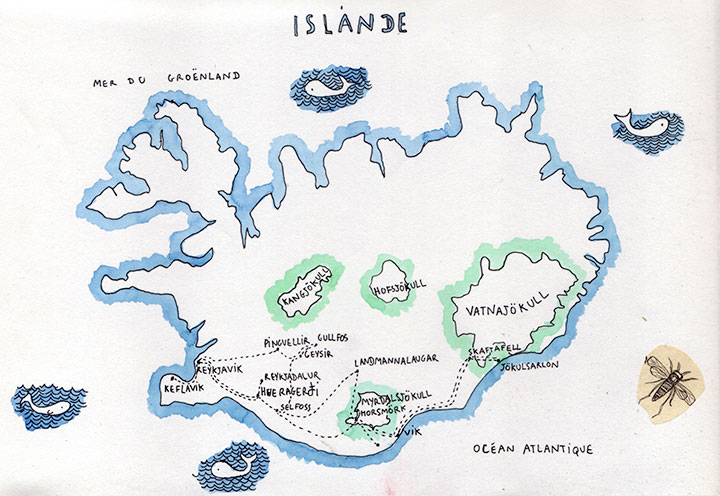 ISLANDE
MER DU GROËNLAND
KANGJÖKULL
HOFSJÖKULL
VATNAJÖKULL
PINGVELLIR
GULLFOS
GEYSIR
SKAFTAFELL
JÖKULSARLON
REYKJAVIK
KEFLAVIK
REYKJADALUR
LANDMANNALAUGAR
SELFOSS
MYRDALSJÖKULL
THORSMÖRK
VIK
OCÉAN ATLANTIQUE